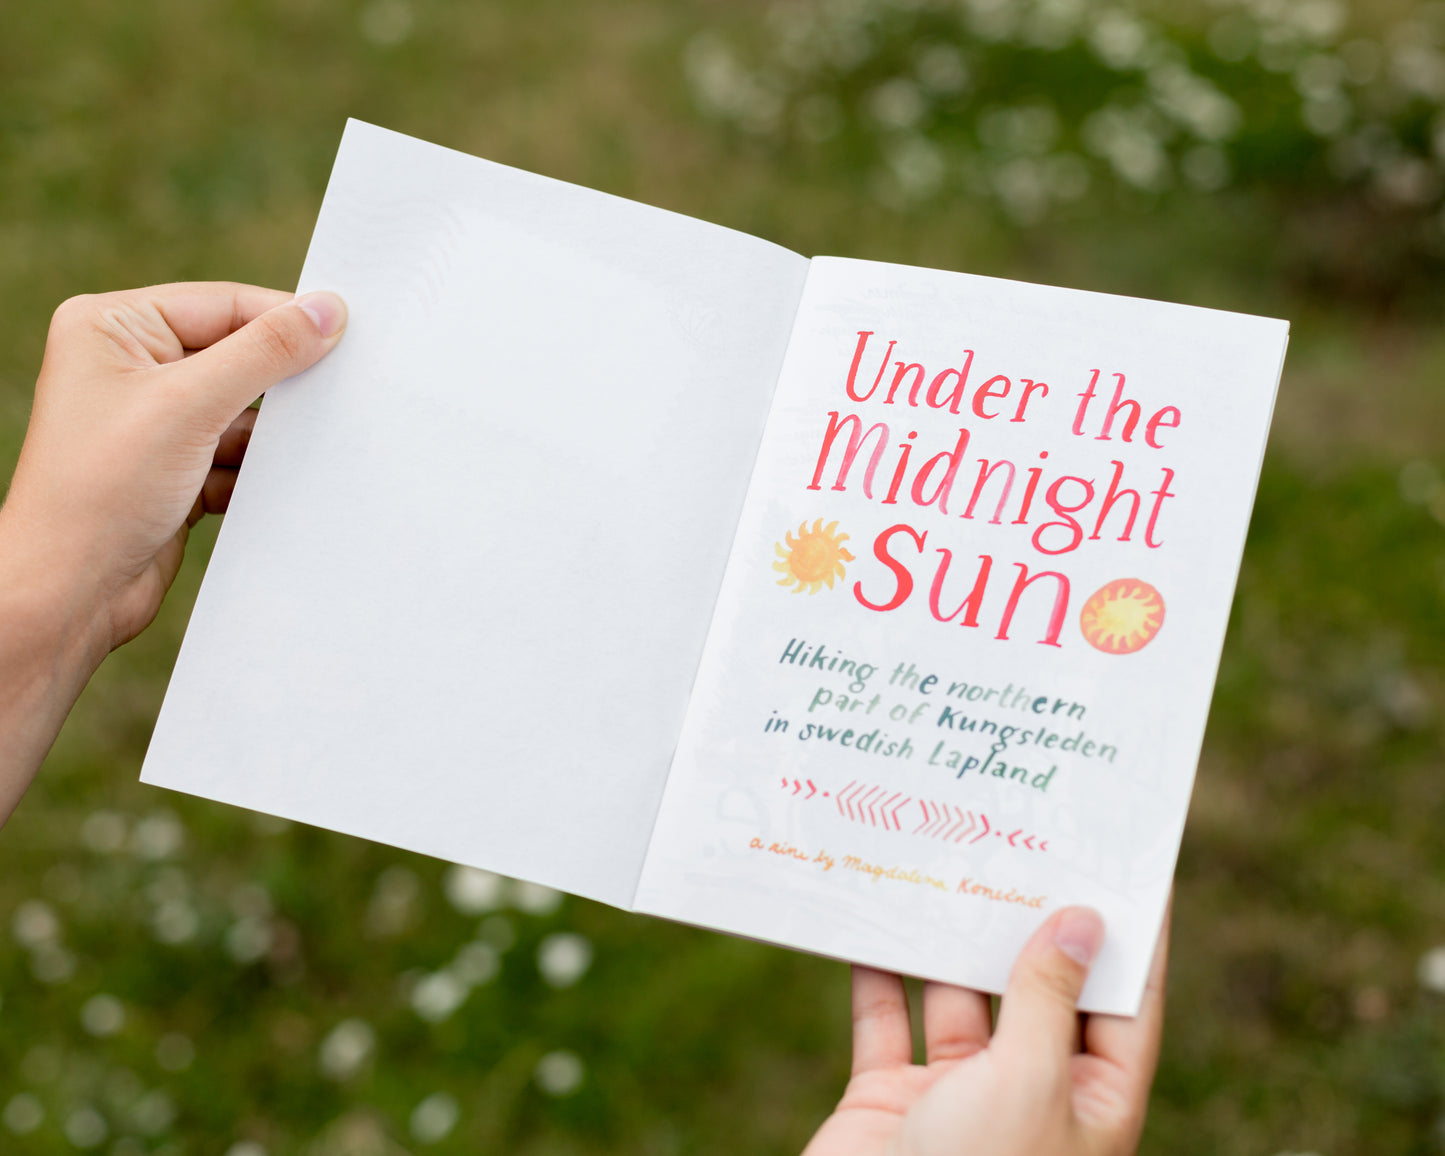 Under the
Midnight
Sun
Hiking the northern
part of Kungsleden
in swedish Lapland
a zine by Magdalena Konečná